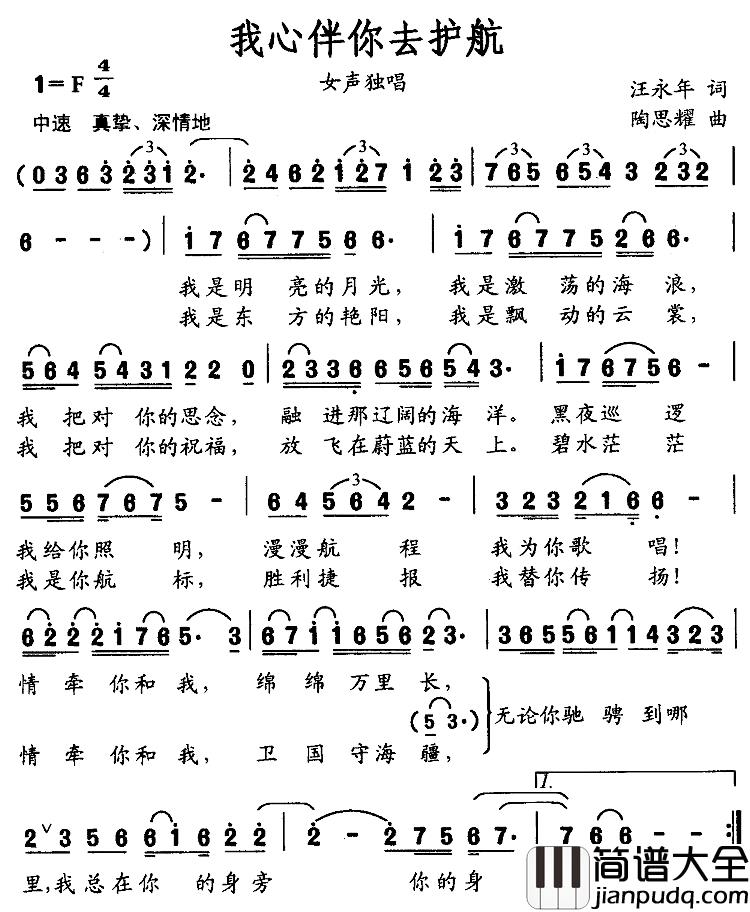 我心伴你去护航
1=F 4/4
女声独唱
汪永年 词
中速 真挚、深情地
陶思耀 曲
(0 3 6 3 2 3 1 2· | 2 4 6 2 1 2 7 1 2 3 | 7 6 5 6 5 4 3 2 3 2 |
6 - - - ) | 1 7 6 7 7 5 6 6· | 1 7 6 7 7 5 2 6 6· |
我是明 亮的月光, 我是激 荡的海 浪,
我是东 方的艳阳, 我是飘 动的云 裳,
5 6 4 5 4 3 1 2 2 0 | 2 3 3 6 6 5 6 5 4 3· | 1 7 6 7 5 6 - |
我 把对 你的思念, 融 进那辽阔的海 洋。黑夜巡 逻
我 把对 你的祝福, 放 飞在蔚蓝的天 上。碧水茫 茫
5 5 6 7 6 7 5 - | 6 4 5 6 4 2 - | 3 2 2 3 2 1 6 6 - |
我给你照 明, 漫漫航 程 我为你歌 唱!
我是你航 标, 胜利捷 报 我替你传 扬!
6 2 2 2 1 7 6 5· 3 | 6 7 1 1 6 5 6 2 3· | 3 6 5 5 6 1 1 4 3 2 3 |
情 牵 你和我, 绵 绵 万里 长,
(5 3·) 无论你驰 骋 到哪
情 牵 你和我, 卫 国 守海 疆,
1.
2 ∨ 3 5 6 6 1 6 2 2 | 2 - 2 7 5 6 7· | 7 6 6 - :||
里,我 总 在 你 的 身 旁 你 的 身
简谱大全
jianpudq.com